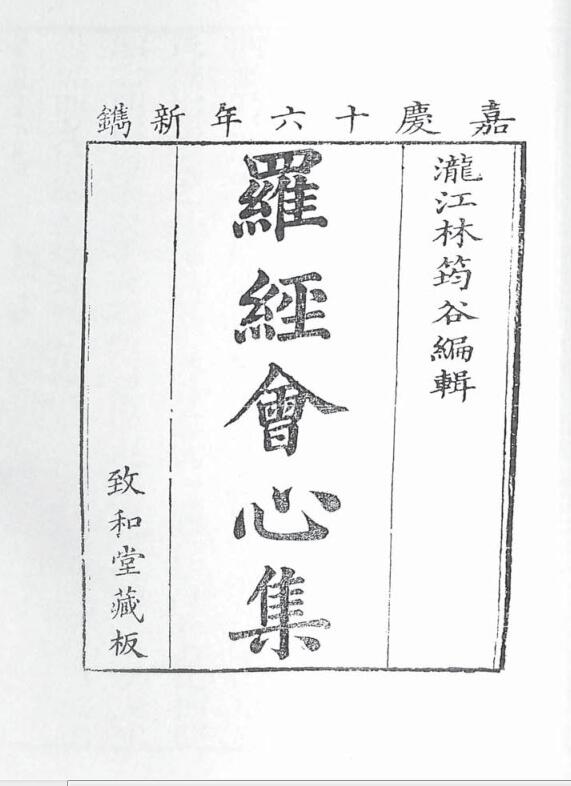 嘉慶十六年新鐫
瀧江林筠谷編輯
羅經會心集
致和堂藏板